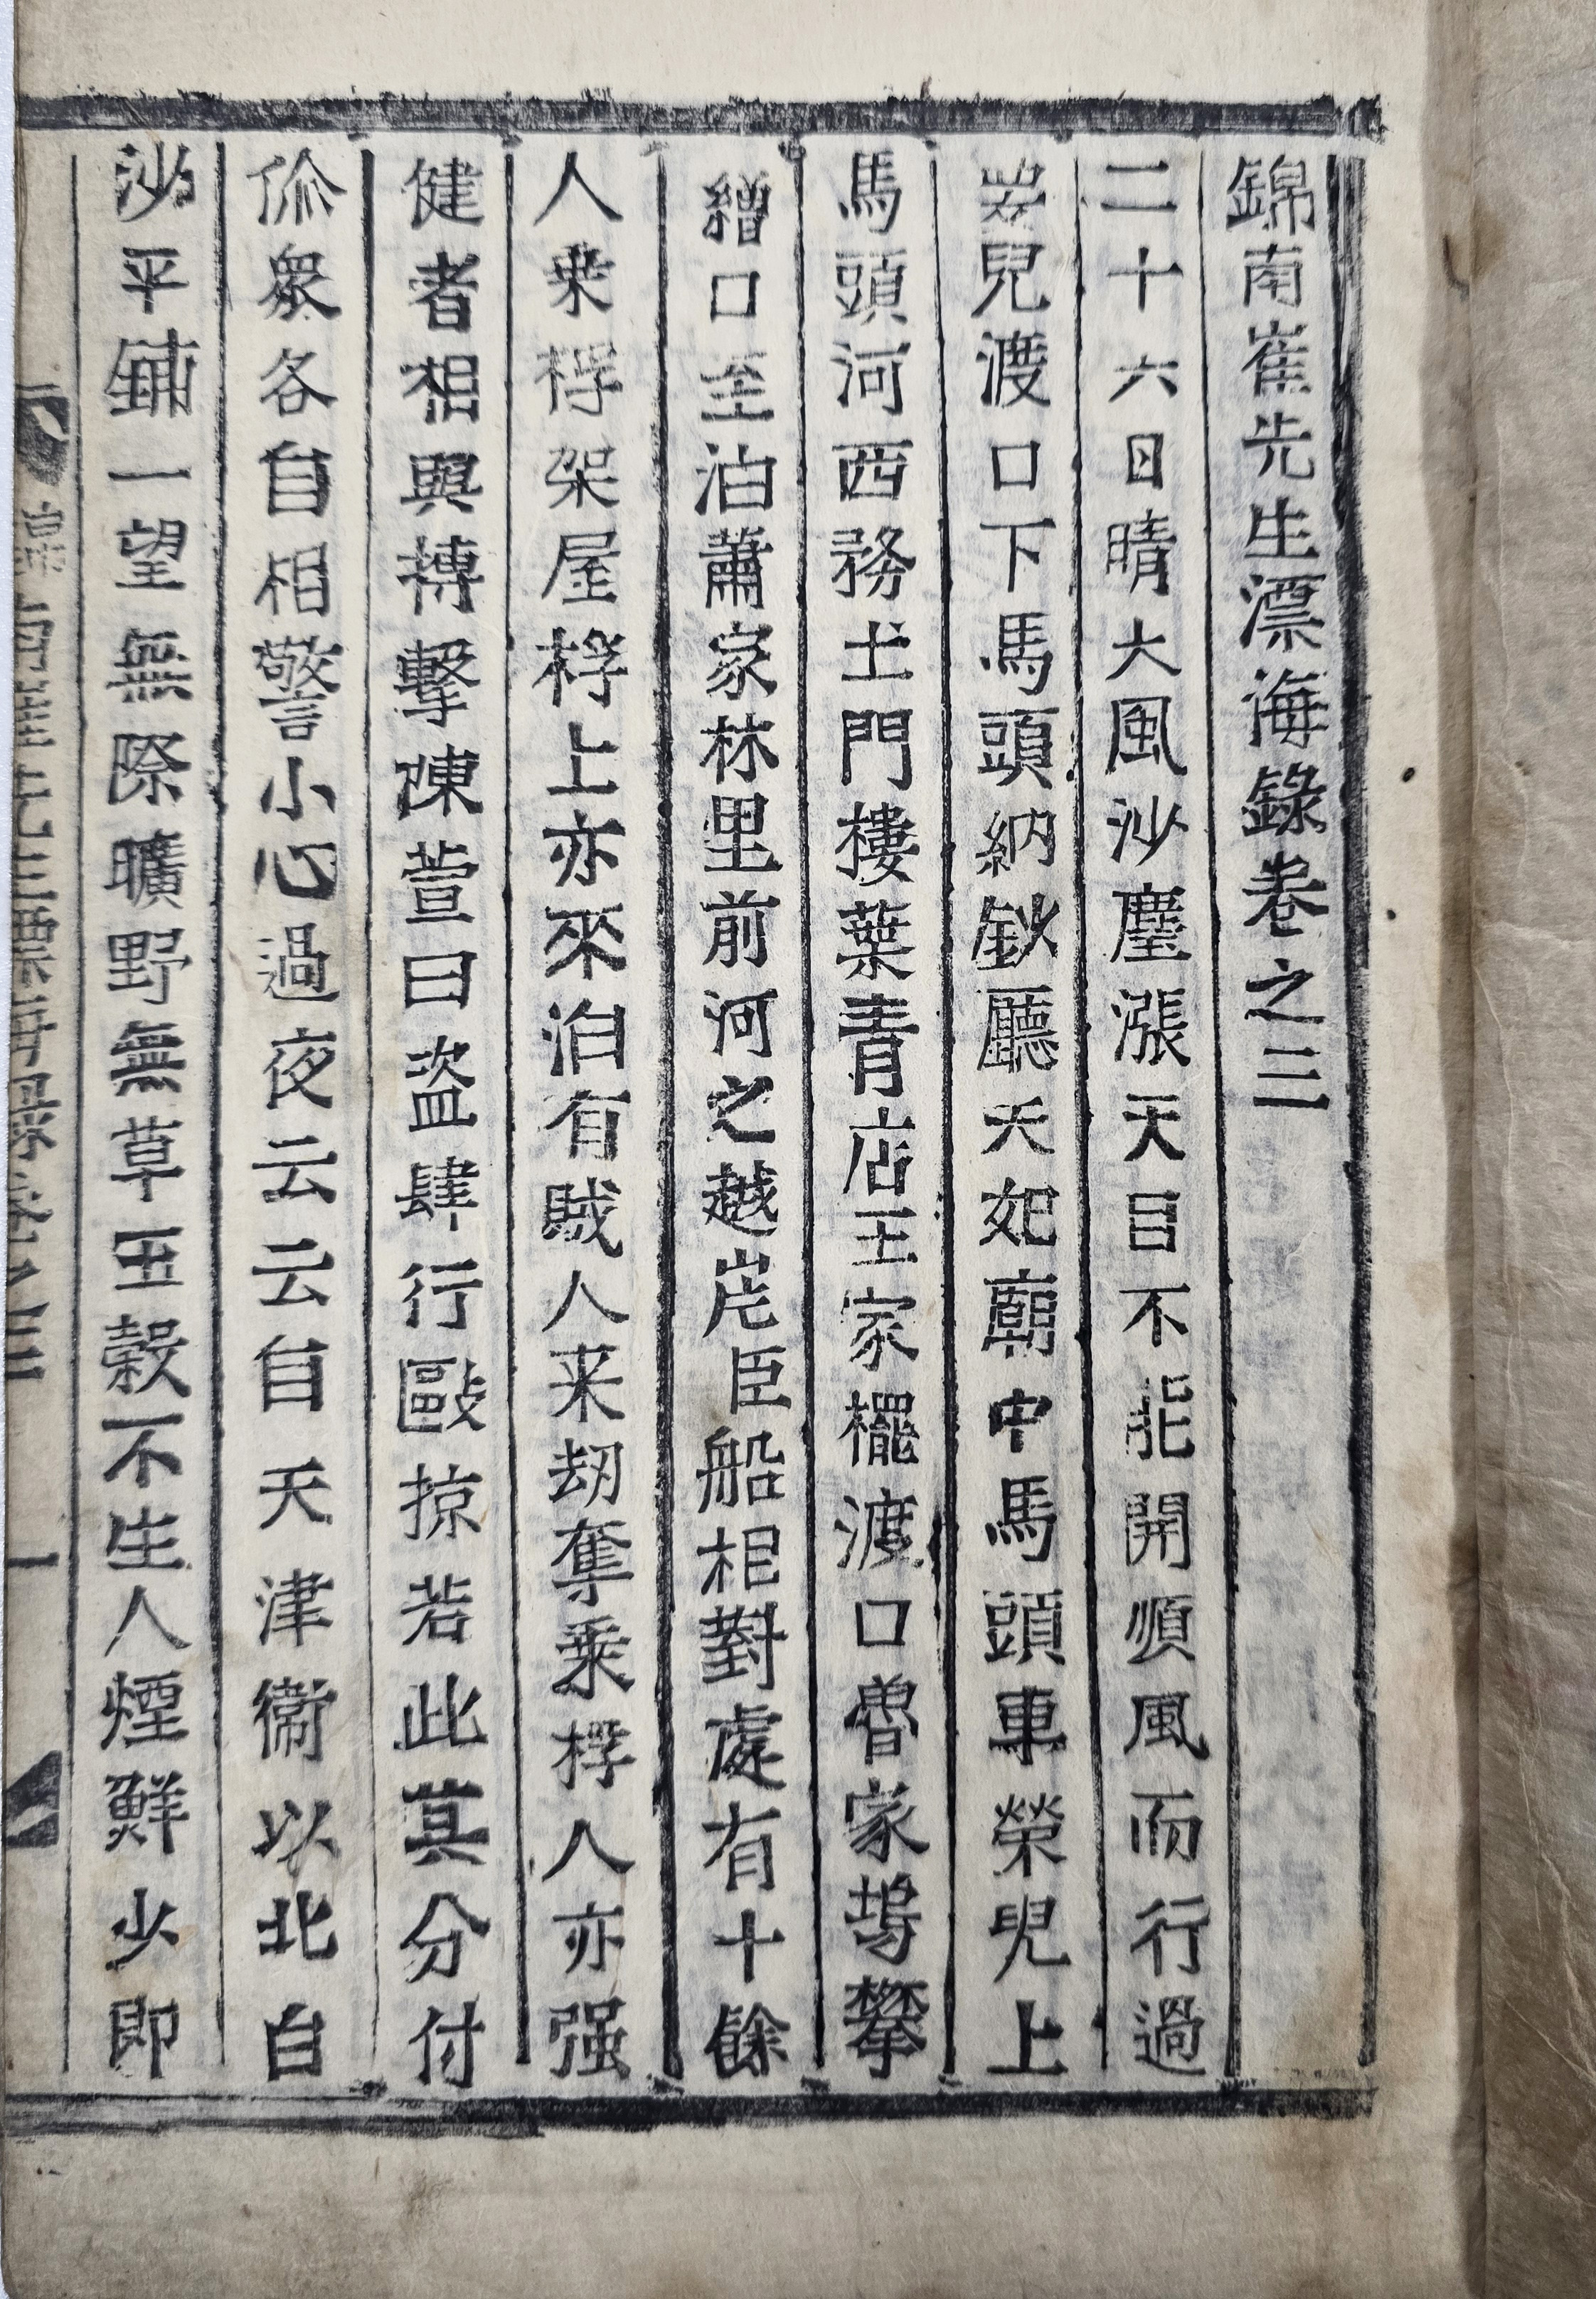 錦南崔先生漂海錄卷之三
二十六日晴大風沙塵漲天目不能開順風而行過
崣兒渡口下馬頭納鈔廳天妃廟中馬頭車榮兒上
馬頭河西務土門樓葉青店王家擺渡口曾家塢攀
繒口至泊蕭家林里前河之越岸臣船相對處有十餘
人乗桴架屋桴上亦來泊有賊人来刼奪乗桴人亦强
健者相與搏擊陳萱曰盗肆行毆掠若此其分付
你衆各自相警小心過夜云云自天津衛以北白
沙平鋪一望無際曠野無草五穀不生人煙鮮少即
錦南崔先生漂海錄卷之三
一